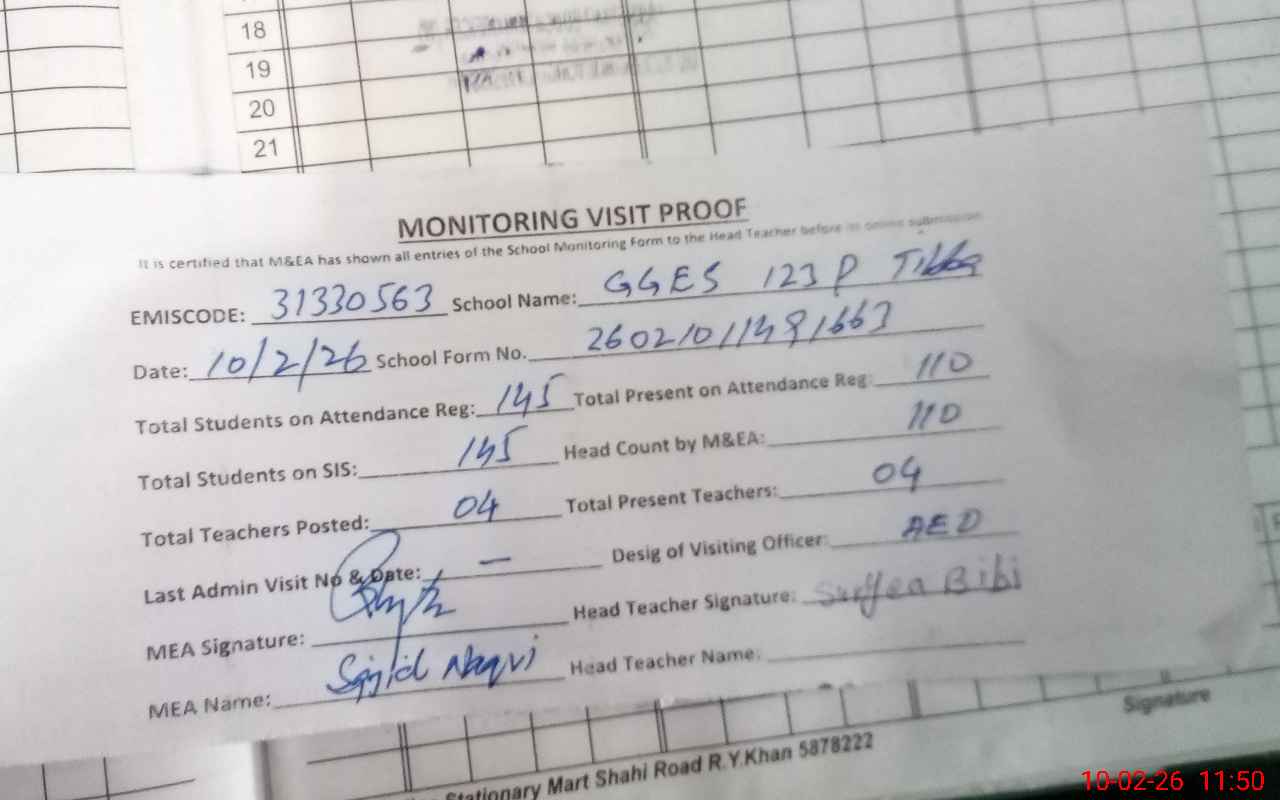 18
19
20
21
MONITORING VISIT PROOF
It is certified that M&EA has shown all entries of the School Monitoring Form to the Head Teacher before its online submission
EMISCODE: 31330563 School Name: GGES 123 P Tibba
Date: 10/2/26 School Form No. 
Total Students on Attendance Reg: 145 Total Present on Attendance Reg: 110
Total Students on SIS: 145 Head Count by M&EA: 110
Total Teachers Posted: 04 Total Present Teachers: 04
Last Admin Visit No & Date: — Desig of Visiting Officer: AEO
MEA Signature: Head Teacher Signature: Bibi
MEA Name: Sajjid Naqvi Head Teacher Name:
Signature
Stationary Mart Shahi Road R.Y.Khan 5878222
10-02-26 11:50